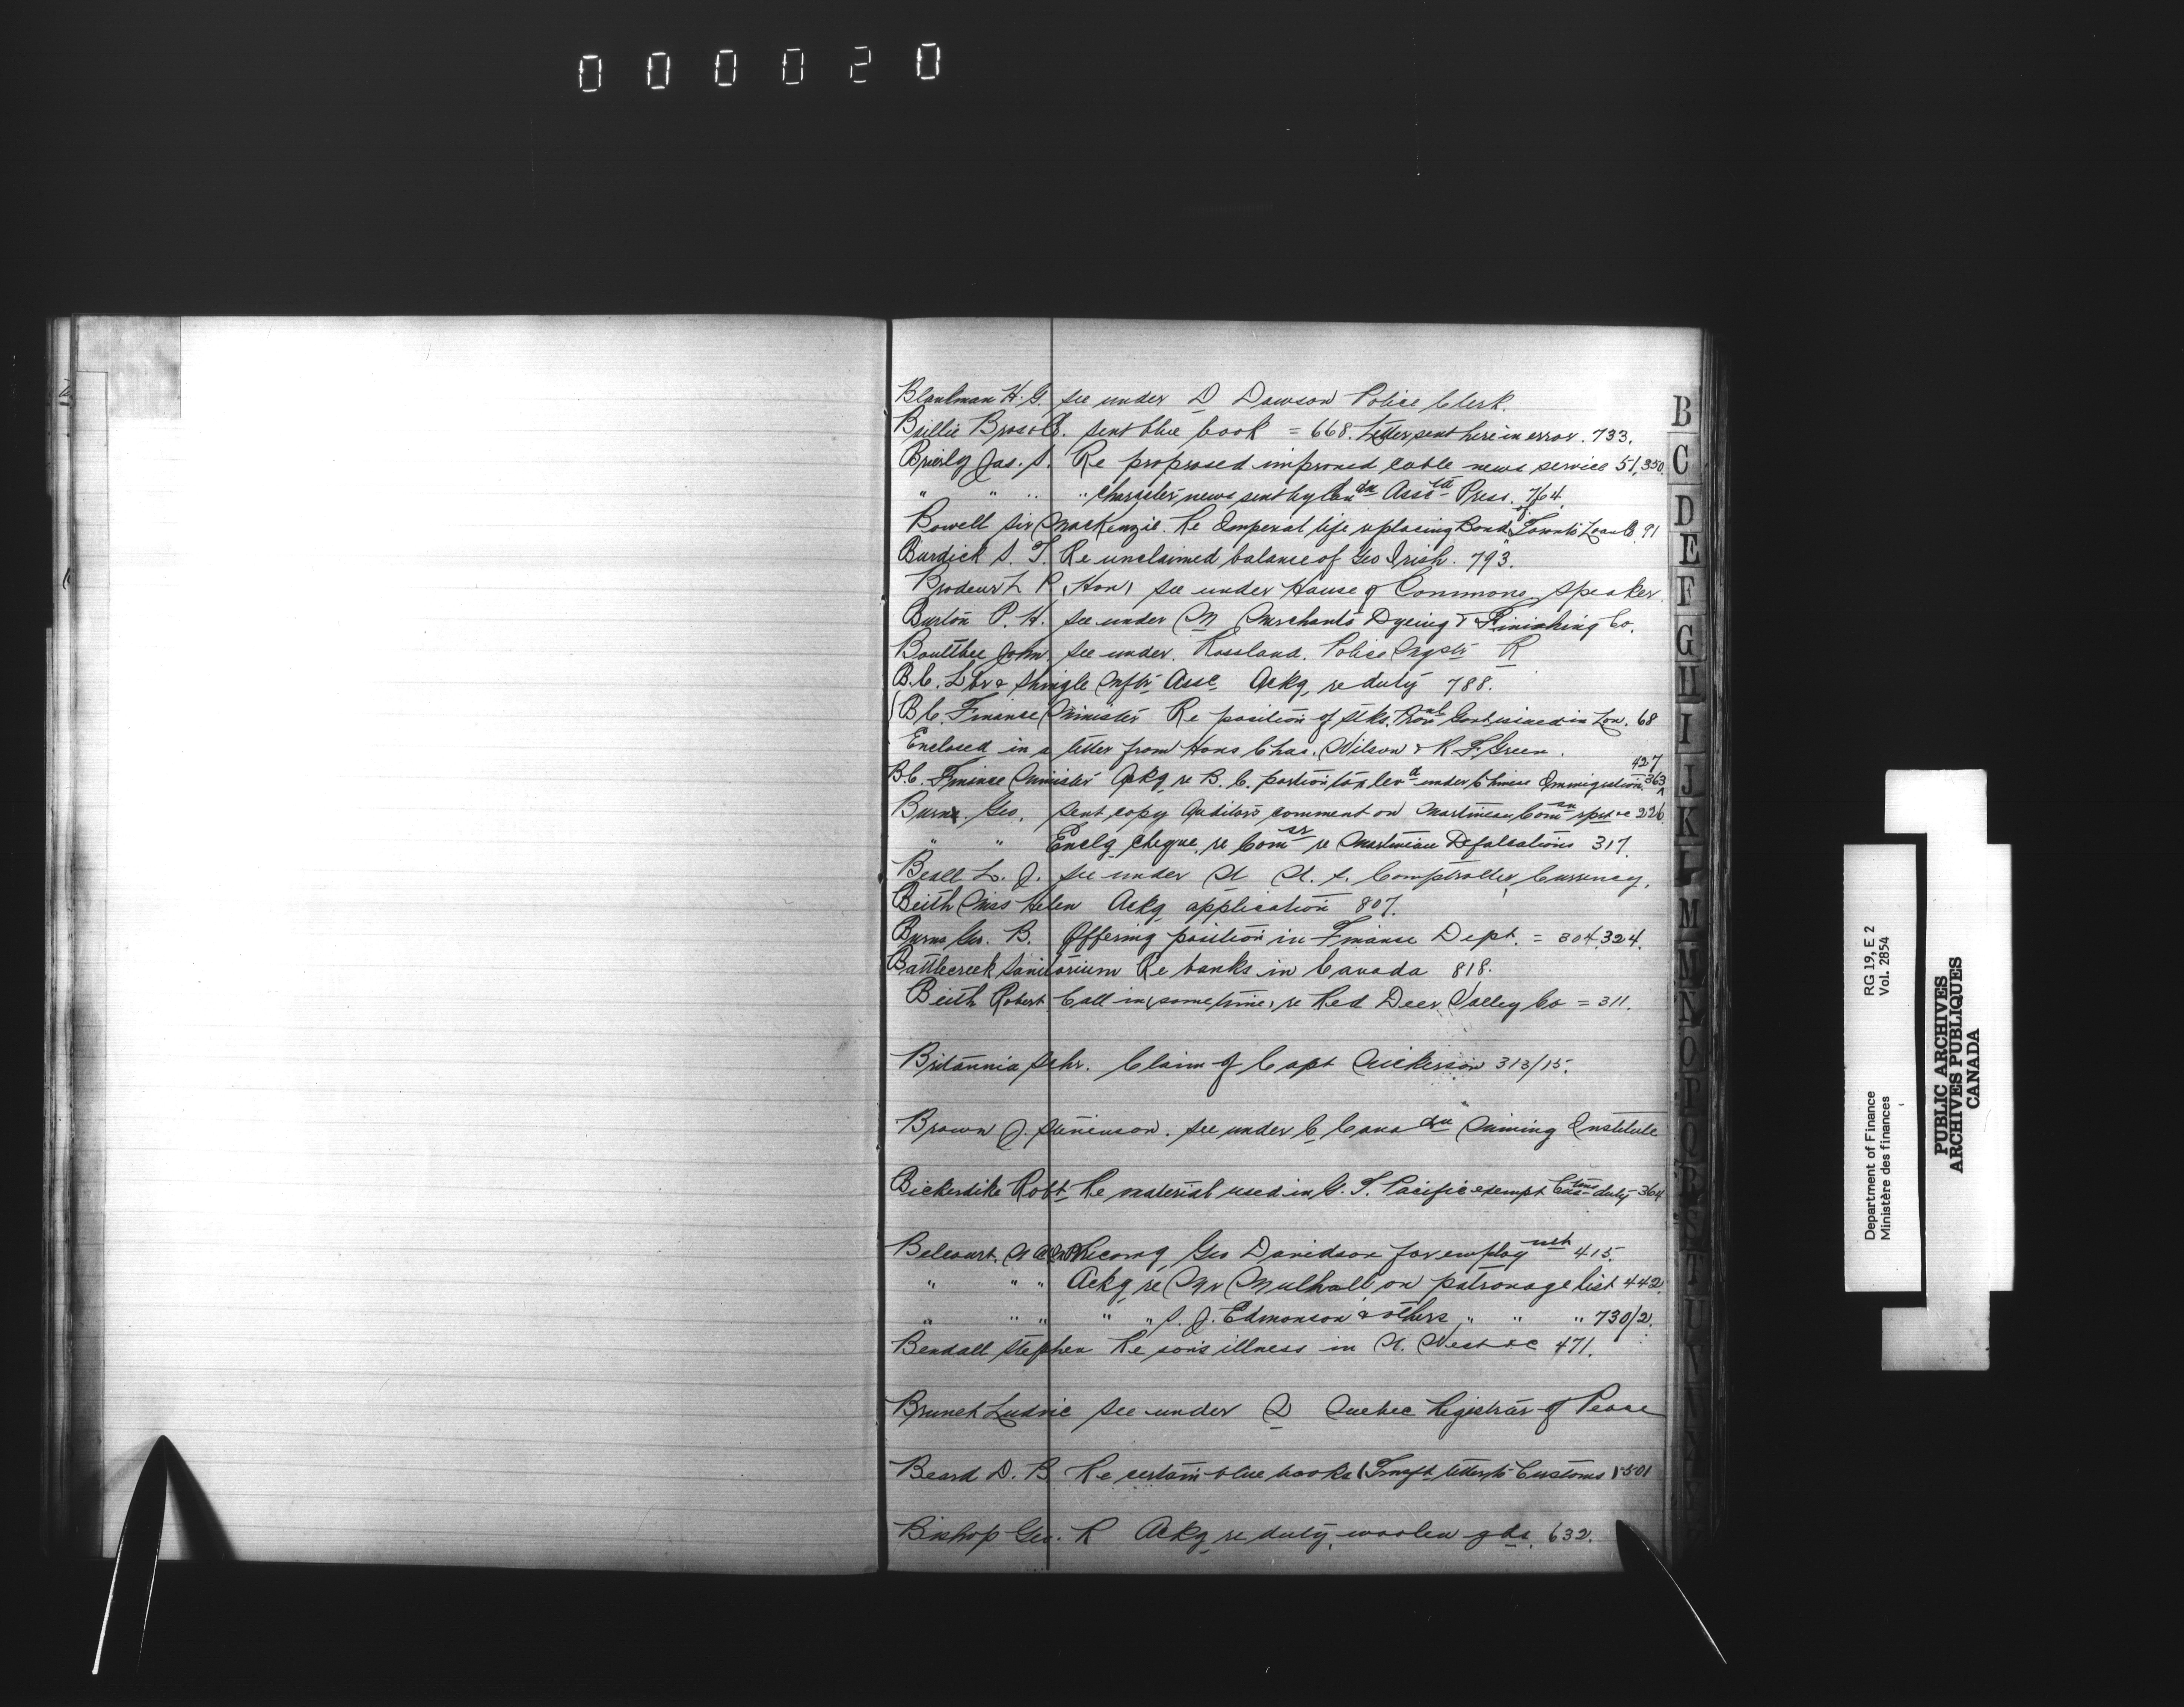 000020
Blankman H. G. see under D Dawson Police Clerk.
Baillie Bros & Co. sent blue book = 668. Letter sent here in error. 733.
Brierly Jas. S. Re proposed improved cable news service 51, 350.
" " " " character news sent by Can dn Assc td Press. 764.
Bowell Sir Mackenzie. Re Imperial life replacing Bonds of Toronto Loan Co. 91
Burdick S. T. Re unclaimed balance of Geo Irish. 793.
Brodeur L P (Hon) see under House of Commons Speaker.
Burton P. H. see under M Merchants Dyeing & Finishing Co.
Boultbee John. see under. Rossland. Police Mgstr R
B.C. Lbr & Shingle Mftrs Assc. Ackg. re duty 788.
(B.C. Finance Minister Re position of stks. Govt issued in Lon. 68
Enclosed in a letter from Hons Chas. Wilson & R. F. Green.
427
B.C. Finance Minister Ackg. re B. C. portion tax lev d under Chinese Immigration 363
Burn Geo. sent copy Auditors comment on Martineau Com sn rprt &c 226.
" " Enclg cheque re Com sr re Martineau Defalcations 317.
Beall L. J. see under U U. S. Comptroller Currency.
Beith Miss Helen Ackg. application 807.
Burns Geo. B. Offering position in Finance Dept. = 304, 324.
Battlecreek Sanitorium Re banks in Canada 818.
Beith Robert Call in (some time) re Red Deer Valley Co = 311.
Britannia Schr. Claim of Capt Nickerson 313/15.
Brown J. Stevenson. see under C Cana dn Mining Institute
Bickerdike Robt Re material used in G. T. Pacific exempt Cus tms duty 364
Belcourt. N A Geo Davidson for employ mt 415.
" " " Ackg. re Mr Mulhall on patronage list 442.
" " " " " S. J. Edmonson & others " " " 730/2.
Bendall Stephen Re son's illness in N. West &c 471.
Brunet Ludvic see under Q Quebec Registrar of Peace
Beard D. B Re certain blue books (Trnsft. letter to Customs) 501
Bishop Geo. R Ackg. re duty, woolen gds. 632.
B
C
D
E
F
G
H
I
J
K
L
M
N
O
P
Q
R
S
T
Department of Finance RG 19, E 2
Ministère des finances Vol. 2854
PUBLIC ARCHIVES
ARCHIVES PUBLIQUES
CANADA